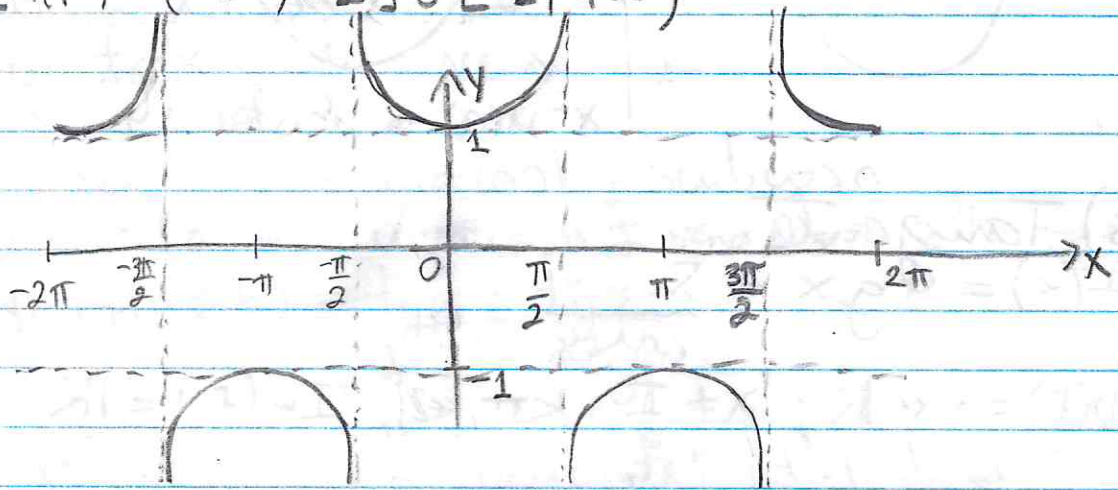 y
1
-2π -3π/2 -π -π/2 0 π/2 π 3π/2 2π x
-1